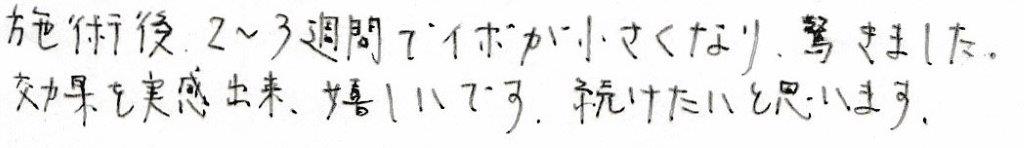 施術後、2～3週間でイボが小さくなり、驚きました。
効果を実感出来、嬉しいです。続けたいと思います。